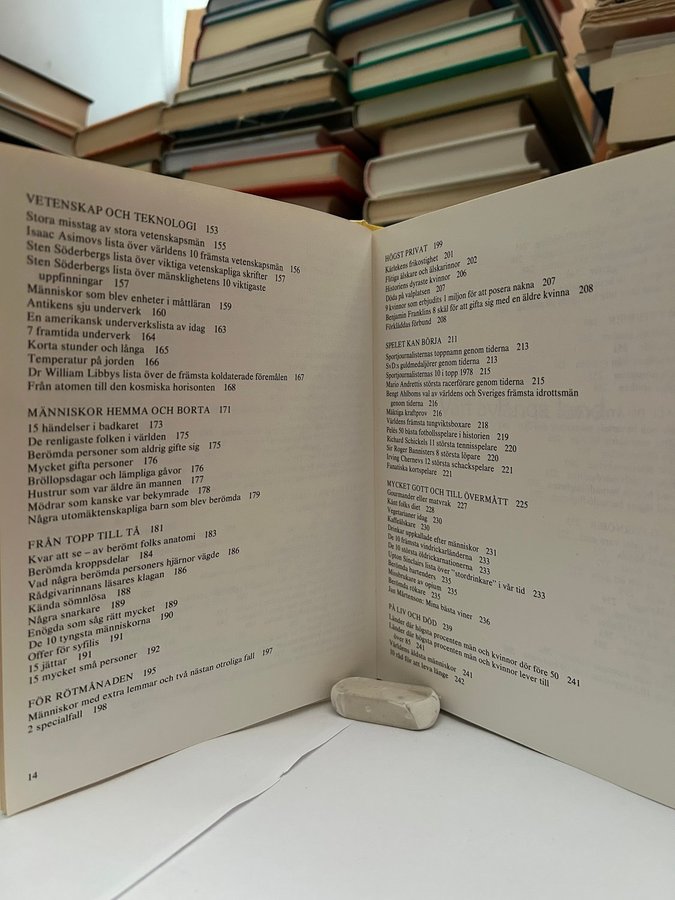 VETENSKAP OCH TEKNOLOGI 153
Stora misstag av stora vetenskapsmän 155
Isaac Asimovs lista över världens 10 främsta vetenskapsmän 156
Sten Söderbergs lista över viktiga vetenskapliga skrifter 157
Sten Söderbergs lista över mänsklighetens 10 viktigaste
uppfinningar 157
Människor som blev enheter i måttläran 159
Antikens sju underverk 160
En amerikansk underverkslista av idag 163
7 framtida underverk 164
Korta stunder och långa 165
Temperatur på jorden 166
Dr William Libbys lista över de främsta koldaterade föremålen 167
Från atomen till den kosmiska horisonten 168
MÄNNISKOR HEMMA OCH BORTA 171
15 händelser i badkaret 173
De renligaste folken i världen 175
Berömda personer som aldrig gifte sig 175
Mycket gifta personer 176
Bröllopsdagar och lämpliga gåvor 176
Hustrur som var äldre än mannen 177
Mödrar som kanske var bekymrade 178
Några utomäktenskapliga barn som blev berömda 179
FRÅN TOPP TILL TÅ 181
Kvar att se – av berömt folks anatomi 183
Berömda kroppsdelar 184
Vad några berömda personers hjärnor vägde 186
Rådgivarinnans läsares klagan 186
Kända sömnlösa 188
Några snarkare 189
Enögda som såg rätt mycket 189
De 10 tyngsta människorna 190
Offer för syfilis 191
15 jättar 191
15 mycket små personer 192
FÖR RÖTMÅNADEN 195
Människor med extra lemmar och två nästan otroliga fall 197
2 specialfall 198
14
HÖGST PRIVAT 199
Kärlekens frikostighet 201
Flitiga älskare och älskarinnor 202
Historiens dyraste kvinnor 206
Döda på valplatsen 207
9 kvinnor som erbjudits 1 miljon för att posera nakna 207
Benjamin Franklins 8 skäl för att gifta sig med en äldre kvinna 208
Förklädas förbund 208
SPELET KAN BÖRJA 211
Sportjournalisternas toppnamn genom tiderna 213
SvD:s guldmedaljörer genom tiderna 213
Sportjournalisternas 10 i topp 1978 215
Mario Andrettis största racerförare genom tiderna 215
Bengt Ahlboms val av världens och Sveriges främsta idrottsmän
genom tiderna 216
Mäktiga kraftprov 216
Världens främsta tungviktsboxare 218
Pelés 50 bästa fotbollsspelare i historien 219
Richard Schickels 11 största tennisspelare 220
Sir Roger Bannisters 8 största löpare 220
Irving Chernevs 12 största schackspelare 221
Fanatiska kortspelare 221
MYCKET GOTT OCH TILL ÖVERMÅTT 225
Gourmander eller matvrak 227
Känt folks diet 228
Vegetarianer idag 230
Kaffeälskare 230
Drinkar uppkallade efter människor 231
De 10 främsta vindrickarländerna 233
De 10 största öldrickarnationerna 233
Upton Sinclairs lista över "stordrinkare" i vår tid 233
Berömda bartenders 235
Missbrukare av opium 235
Berömda rökare 235
Jan Mårtenson: Mina bästa viner 236
PÅ LIV OCH DÖD 239
Länder där högsta procenten män och kvinnor dör före 50 241
Länder där högsta procenten män och kvinnor lever till
över 85 241
Världens äldsta människor 241
10 råd för att leva länge 242